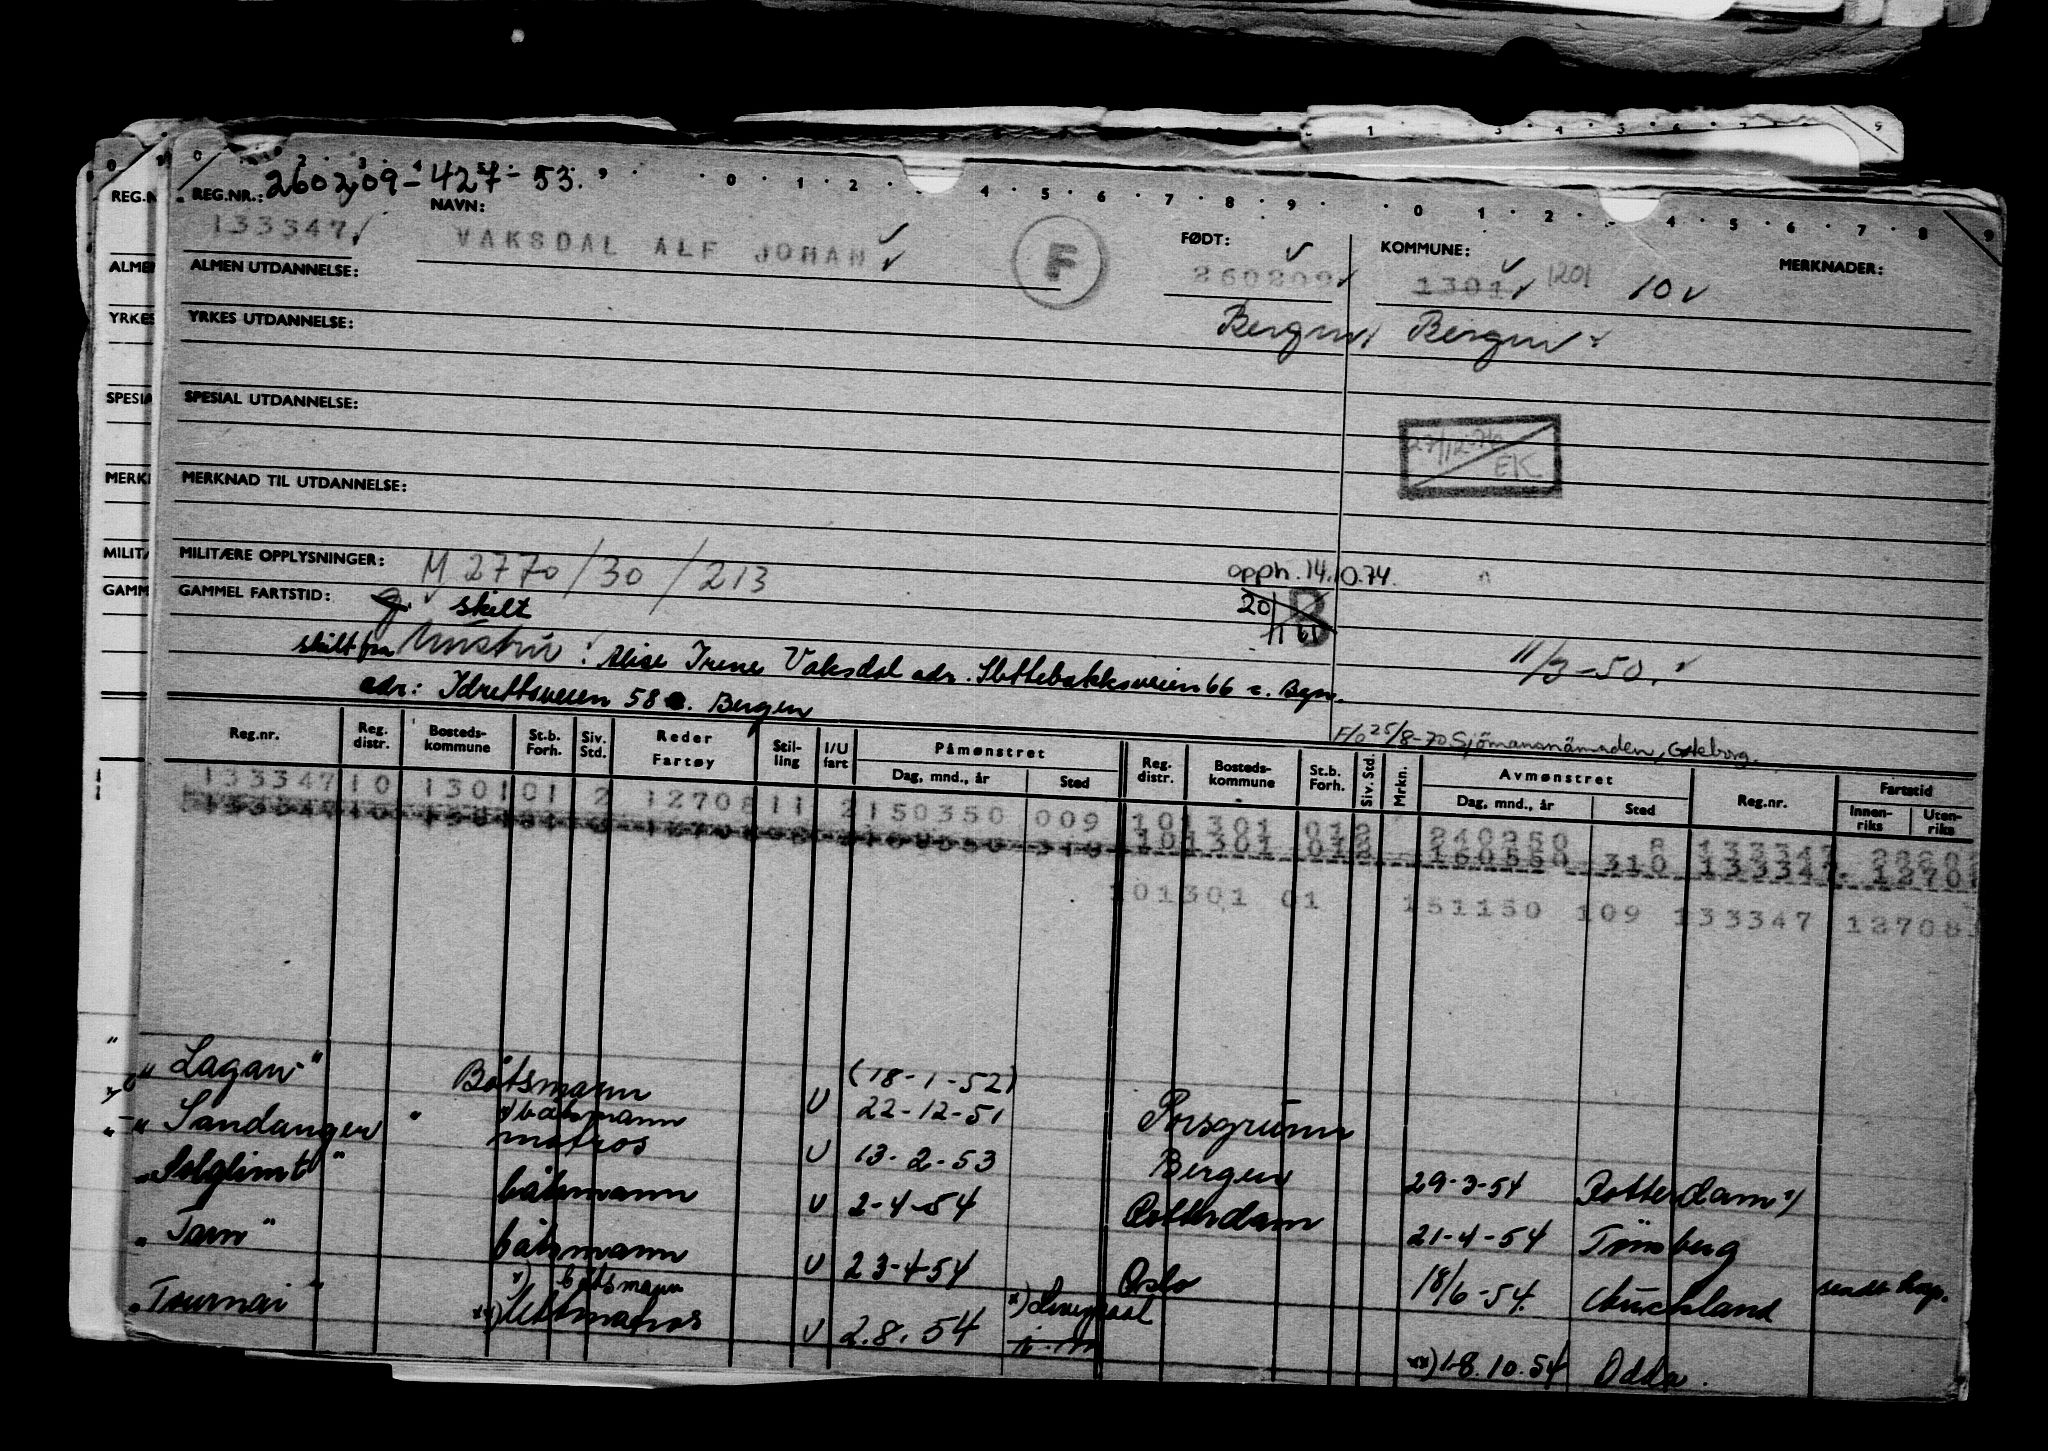 REG.NR.: 260209-427-53.
133347 NAVN: VAKSDAL ALF JOHAN F FØDT: 260209 KOMMUNE: 1301 1201 10 MERKNADER:
ALMEN UTDANNELSE:
Bergen Bergen
YRKES UTDANNELSE:
SPESIAL UTDANNELSE:
27/12-74 EK
MERKNAD TIL UTDANNELSE:
MILITÆRE OPPLYSNINGER: M 2770/30/213
opph. 14.10.74.
GAMMEL FARTSTID: g. skilt 20/11 61 B
skilt fra Hustru: Alise Irene Vaksdal adr. Slettebakksveien 66 c. Bgn.
11/3-50.
adr: Idrettsveien 58 Bergen
F/6 25/8-70 Sjömansnämnden, Göteborg.
Reg.nr. Reg. distr. Bosteds-kommune St.b. Forh. Siv. Std. Reder Fartøy Stil-ling I/U fart Påmønstret Dag, mnd., år Sted Reg. distr. Bosteds-kommune St.b. Forh. Siv. Std. Mrkn. Avmønstret Dag, mnd., år Sted Reg.nr. Fartstid Innen-riks Uten-riks
133347 10 1301 01 2 12708 11 2 150350 009 10 1301 01 2 240250 8 133347
10 1301 01 2 160550 310 133347 1270
10 1301 01 151150 109 133347 12708
"Lagan" Båtsmann U (18-1-52) 22-12-51 Porsgrunn
"Sandanger" x) båtsmann matros U 13-2-53 Bergen 29-3-54 Rotterdam x)
"Solglimt" båtsmann U 2-4-54 Rotterdam 21-4-54 Tønsberg
"Tarn" båtsmann U 23-4-54 Oslo 18/6-54. Auckland sendt hosp.
"Tournai" x) båtsmann xx) lettmatros U 2.8.54 x) Liverpool xx) 18.10.54 Odda.